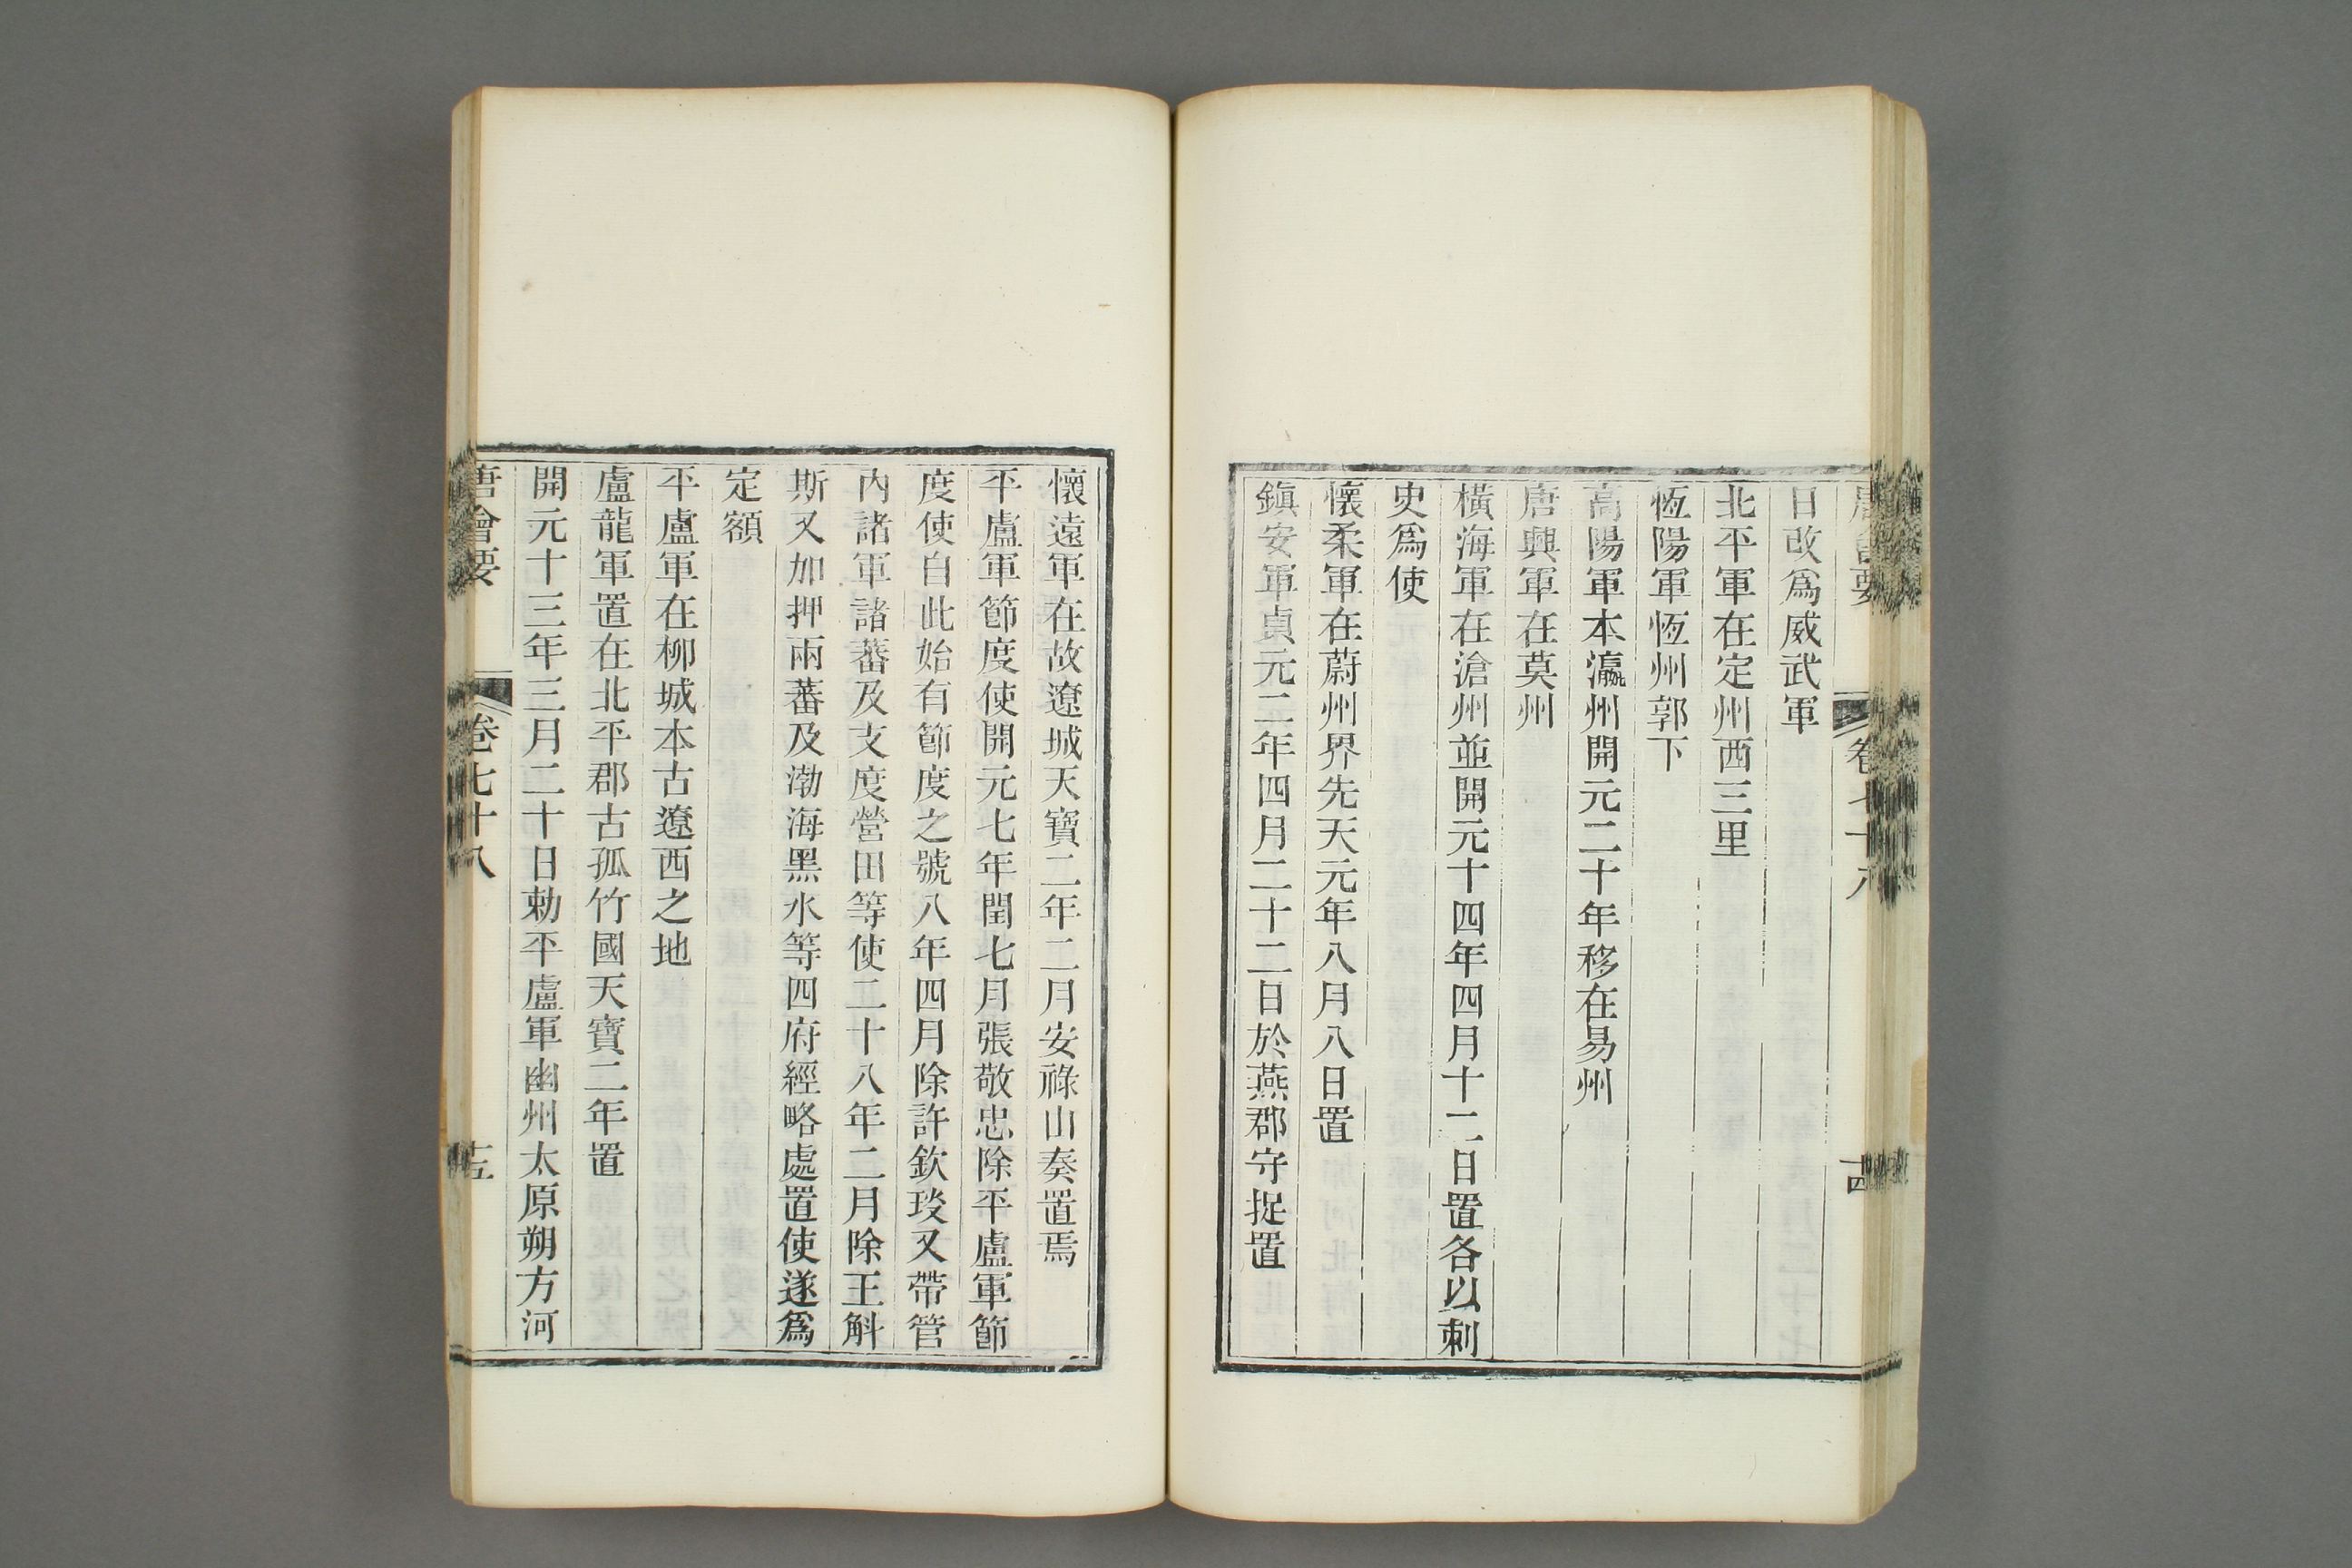 日改爲威武軍
北平軍在定州西三里
恆陽軍恆州郭下
高陽軍本瀛州開元二十年移在易州
唐興軍在莫州
橫海軍在滄州並開元十四年四月十二日置各以刺
史爲使
懷柔軍在蔚州界先天元年八月八日置
鎭安軍貞元二年四月二十二日於燕郡守捉置
懷遠軍在故遼城天寶二年二月安祿山奏置焉
平盧軍節度使開元七年閏七月張敬忠除平盧軍節
度使自此始有節度之號八年四月除許欽琰又帶管
內諸軍諸蕃及支度營田等使二十八年二月除王斛
斯又加押兩蕃及渤海黑水等四府經略處置使遂爲
定額
平盧軍在柳城本古遼西之地
盧龍軍置在北平郡古孤竹國天寶二年置
開元十三年三月二十日勅平盧軍幽州太原朔方河
唐會要
卷七十八
十五